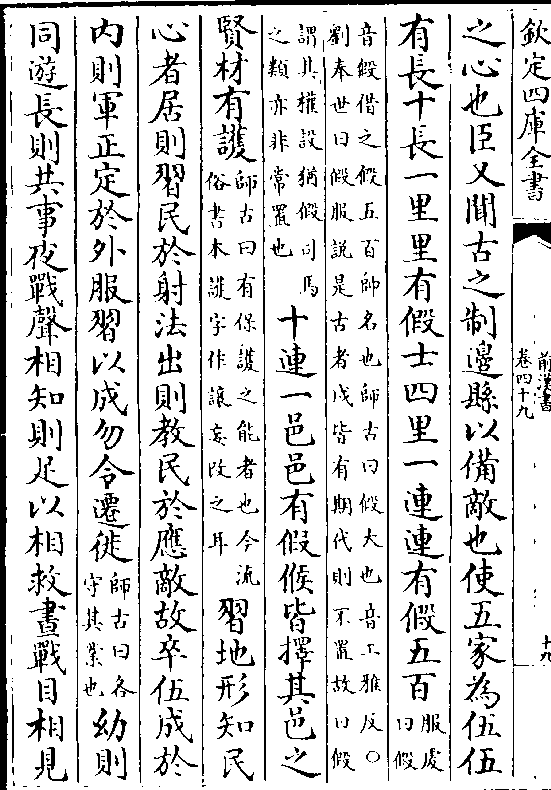 欽定四庫全書
前漢書
卷四十九
十九
之心也臣又聞古之制邊縣以備敵也使五家為伍伍
有長十長一里里有假士四里一連連有假五百
服虔
曰假
音假借之假五百帥名也師古曰假大也音工雅反〇
劉奉世曰假服說是古者戍皆有期代則不置故曰假
謂其權設猶假司馬
之類亦非常置也
十連一邑邑有假候皆擇其邑之
賢材有護
師古曰有保護之能者也今流
俗書本護字作讓妄改之耳
習地形知民
心者居則習民於射法出則教民於應敵故卒伍成於
內則軍正定於外服習以成勿令遷徙
師古曰各
守其業也
幼則
同遊長則共事夜戰聲相知則足以相救晝戰目相見